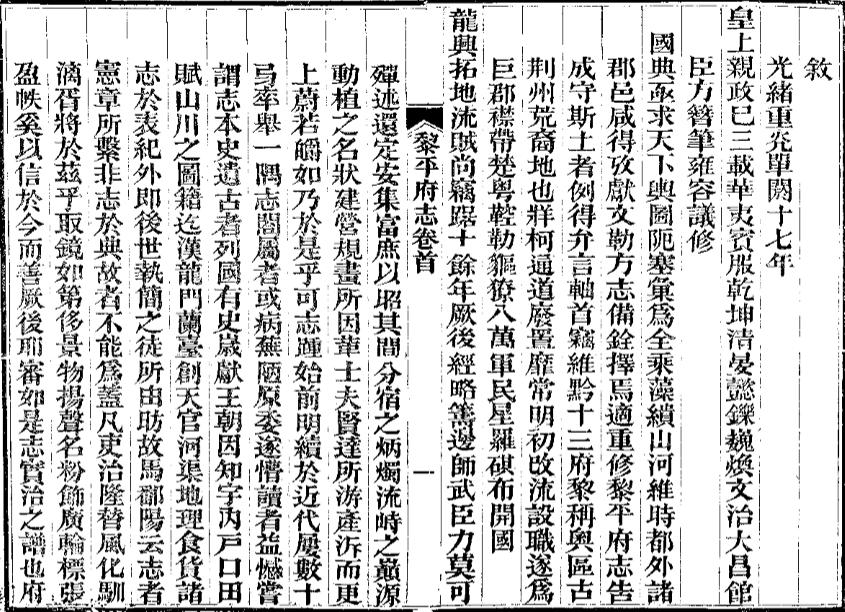 敘
光緒重光單閼十七年
皇上親政已三載華夷賓服乾坤清晏懿鑠巍煥文治大昌館
臣方簪筆雍容議修
國典亟求天下輿圖阨塞彙為全乘藻繢山河維時都外諸
郡邑咸得攷獻文勒方志備銓擇焉適重修黎平府志告
成守斯土者例得弁言軸首竊維黔十三府黎稱輿區古
荆州荒裔地也牂柯通道廢置靡常明初改流設職遂為
巨郡襟帶楚粵鞚勒貙獠八萬軍民星羅碁布開國
龍興拓地流賊尚竊踞十餘年厥後經略籌邊師武臣力莫可
黎平府志卷首
一
殫述還定安集富庶以昭其間分宿之炳燭流峙之巔源
動植之名狀建營規畫所因革士夫賢達所游產泝而更
上蔚若皭如乃於是乎可志踵始前明續於近代屢數十
易率舉一隅志閣屬者或病蕪陋原委遂懵讀者益憾嘗
謂志本史遺古者列國有史歲獻王朝因知宇內戶口田
賦山川之圖籍迄漢龍門蘭臺創天官河渠地理食貨諸
志於表紀外即後世執簡之徒所由昉故馬鄱陽云志者
憲章所繫非志於典故者不能為蓋凡吏治隆替風化馴
漓胥將於茲乎取鏡如第侈景物揚聲名粉飾廣輪標張
盈帙奚以信於今而善厥後耶審如是志實治之譜也府